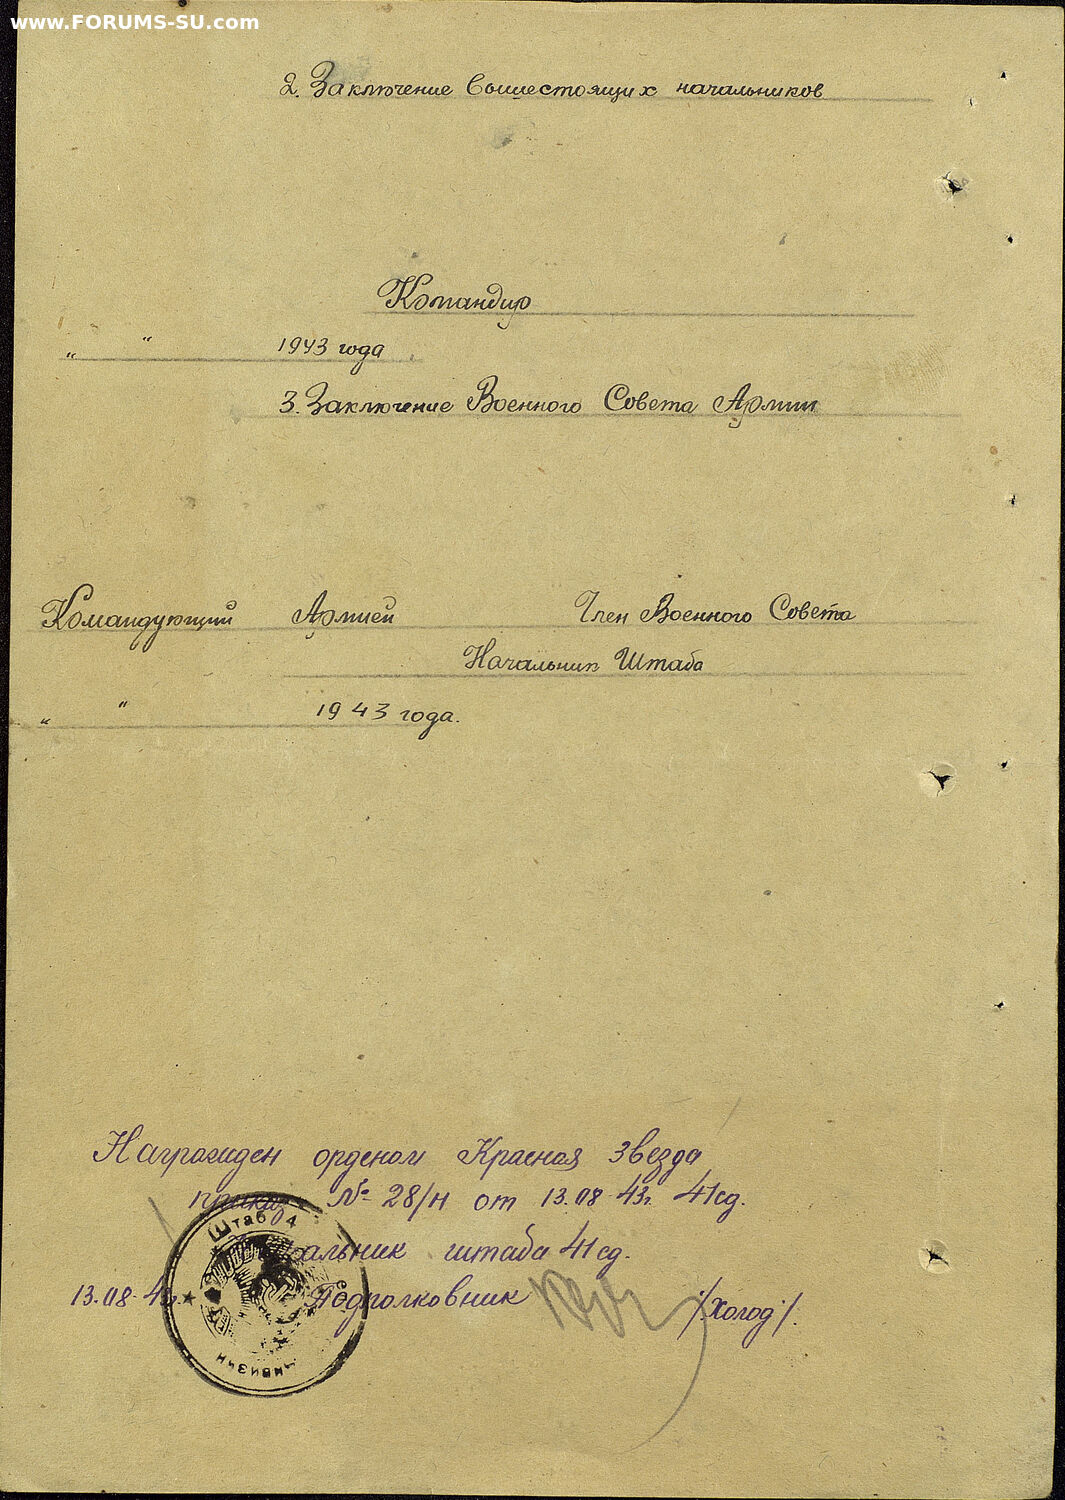 www.FORUMS-SU.com
2. Заключение вышестоящих начальников
Командир
„ “ 1943 года
3. Заключение Военного Совета Армии
Командующий Армией Член Военного Совета
Начальник Штаба
„ “ 1943 года.
Награжден орденом Красная Звезда
приказ № 28/н от 13.08.43г. 41сд.
Штаб 4
альник штаба 41сд.
13.08.43г. Подполковник /Холод/.
дивизии